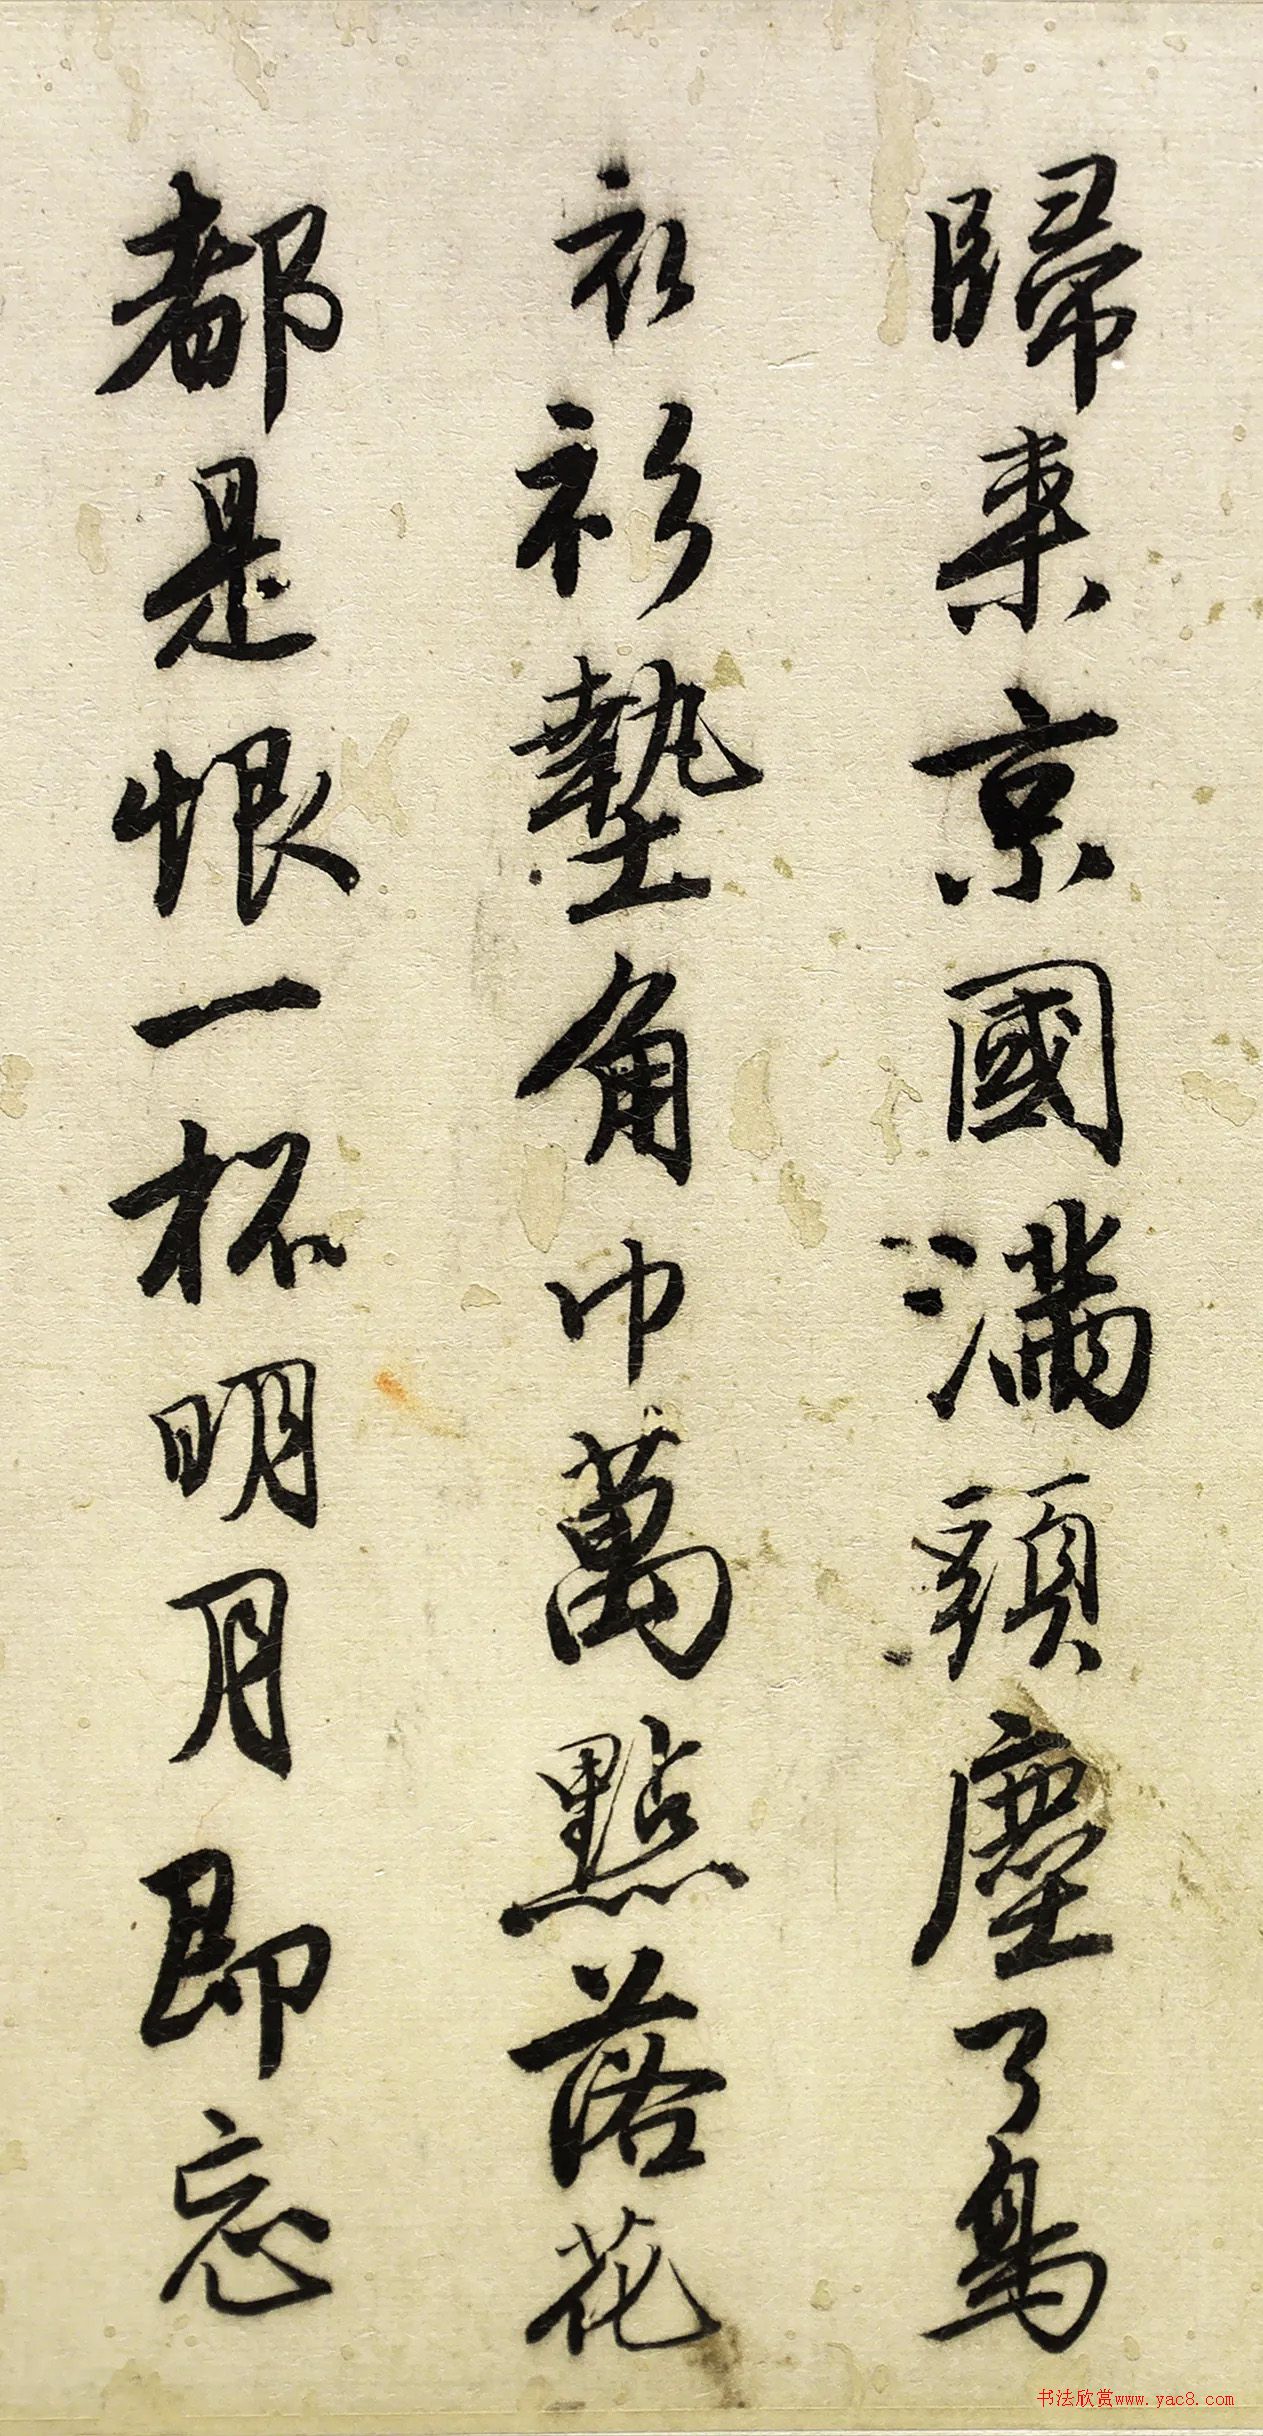 歸来京國滿頭塵了鳥
衣衫墊角巾萬點落花
都是恨一杯明月即忘
书法欣赏www.yac8.com